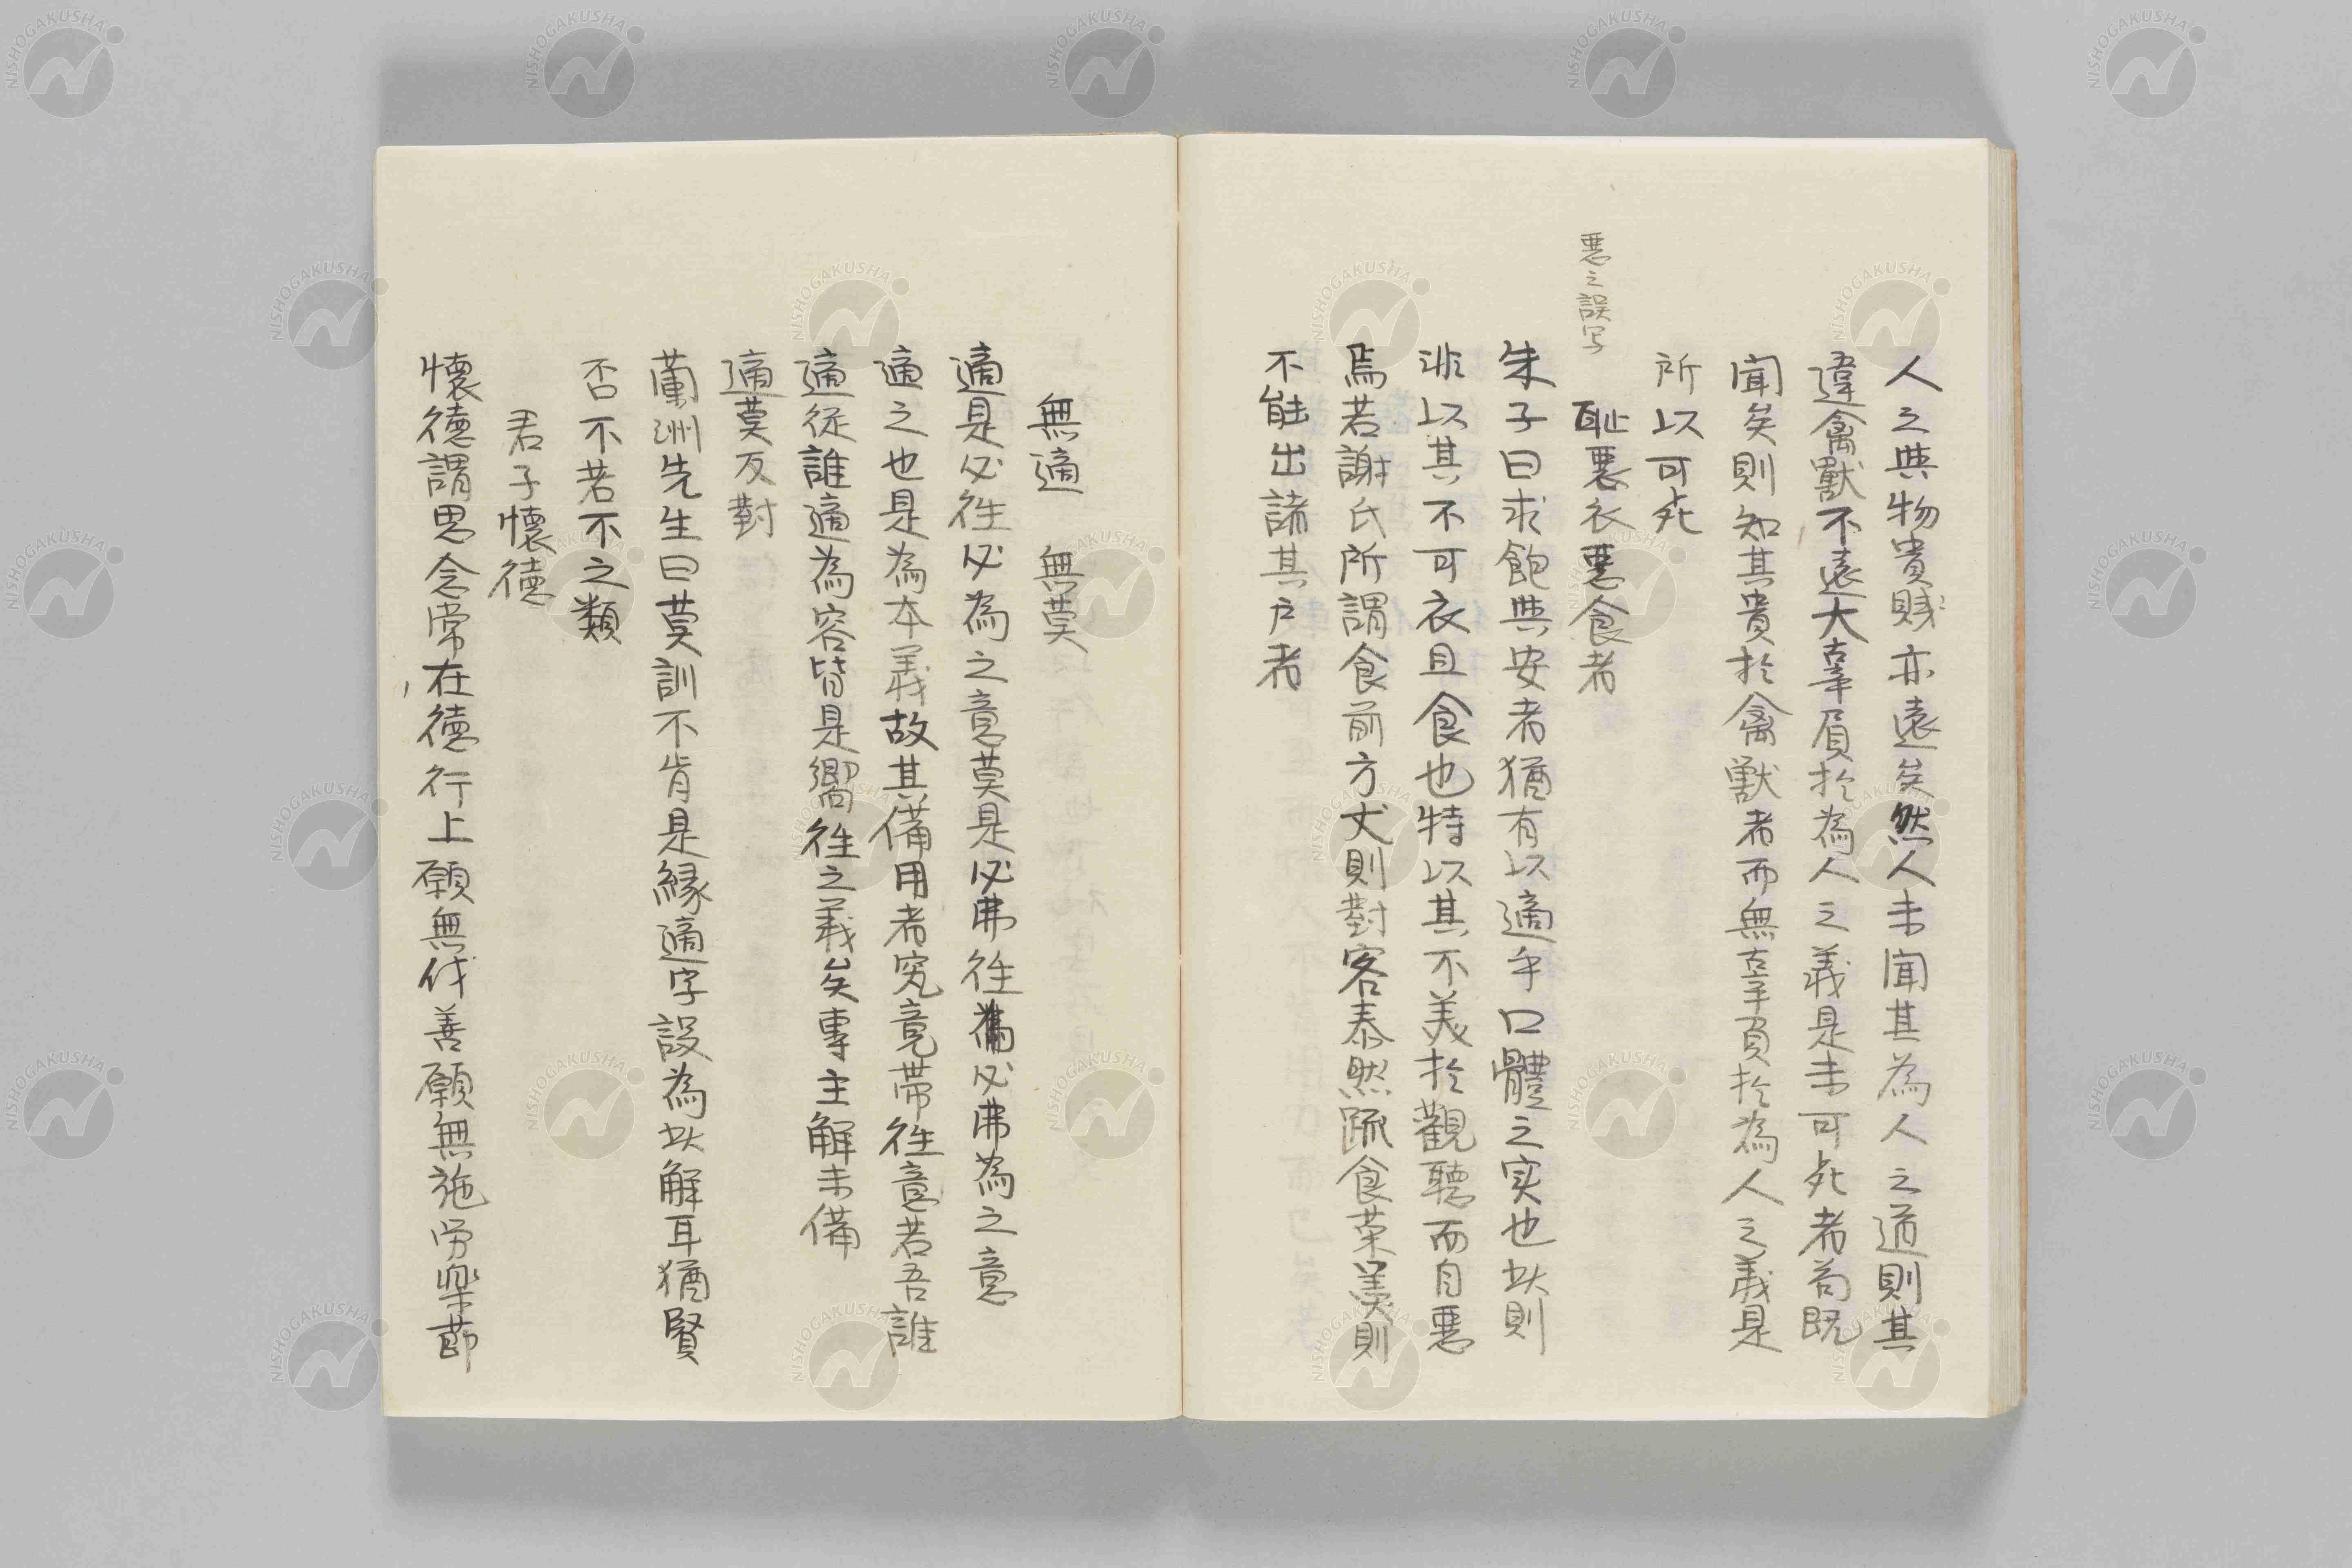 人之與物貴賎亦遠矣然人未聞其為人之道則其
違禽獸不遠大辜屓於為人之義是未可死者苟既
聞矣則知其貴於禽獣者而無辜負於為人之義是
所以可死
悪之誤字
恥悪衣悪食者
朱子曰求飽與安者猶有以適乎口體之实也此則
非以其不可衣且食也特以其不美於觀聽而自悪
焉若謝氏所謂食前方丈則對客泰然疏食菜羹則
不能出諸其戸者
無適 無莫
適是必往必為之意莫是必弗往必弗為之意
適之也是為本義故其備用者究竟帶往意若吾誰
適從誰適為容皆是嚮往之義矣專主解未備
適莫反對
蘭洲先生曰莫訓不肯是縁適字設為此解耳猶賢
否不若不之類
君子懷德
懷德謂思念常在德行上願無伐善願無施労樂節
NISHOGAKUSHA